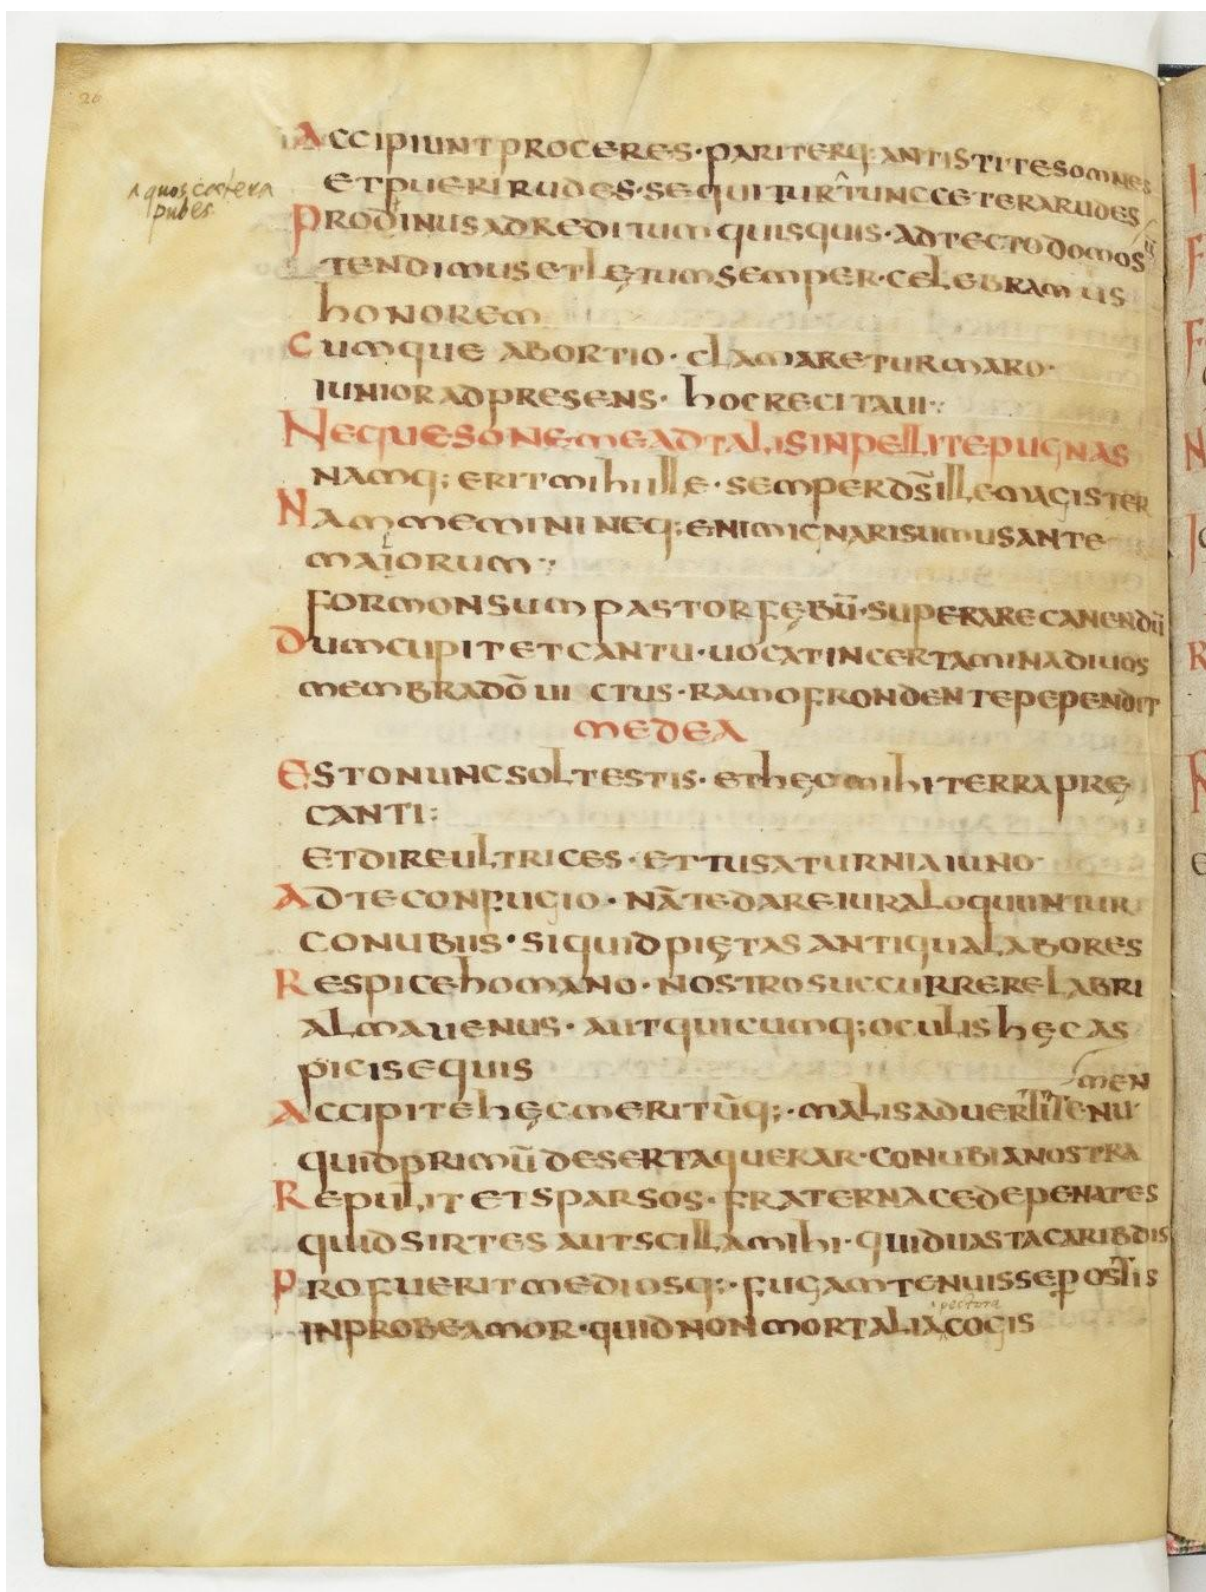 26
ACCIPIUNT PROCERES · PARITERQ; ANTISTITES OMNES
ET PUERI RUDES · SEQUITUR TUNC CETERA RUDES
quos caetera
pubes
PROTINUS AD REDITUM QUISQUIS · AD TECTO DOMOS
TENDIMUS ET LĘTUM SEMPER · CELEBRAMUS
HONOREM
CUMQUE ABORTIO · CLAMARETUR MARO ·
IUNIOR AD PRESENS · HOC RECITAUI ·:
NEQUESO NE ME AD TALIS INPELLITE PUGNAS
NAMQ; ERIT MIHI ILLE · SEMPER DS̄ ILLE MAGISTER
NAM MEMINI NEQ; ENIM IGNARI SUMUS ANTE
MAIORUM ·:
FORMONSUM PASTOR FĘBŪ · SUPERARE CANENDŪ
DUM CUPIT ET CANTU · UOCAT IN CERTAMINA DIUOS
MEMBRA DŌ UICTUS · RAMO FRONDENTE PEPENDIT
MEDEA
ESTO NUNC SOL TESTIS · ET HĘC MIHI TERRA PRĘ
CANTI :
ET DIRE ULTRICES · ET TU SATURNIA IUNO ·
AD TE CONFUGIO · NĀ TE DARE IURA LOQUUNTUR
CONUBIIS · SI QUID PIĘTAS ANTIQUA LABORES
RESPICE HOMANO · NOSTRO SUCCURRERE LABRI
ALMA UENUS · AUT QUICUMQ; OCULIS HĘC AS
PICIS EQUIS
MEN
ACCIPITE HĘC MERITŪQ; · MALIS ADUERTITE NU
QUID PRIMŪ DESERTA QUERAR · CONUBIA NOSTRA
REPULIT ET SPARSOS · FRATERNA CEDE PENATES
QUID SIRTES AUT SCILLA MIHI · QUID UASTA CARIBDIS
PROFUERIT MEDIOSQ; · FUGAM TENUISSE P OSTIS
pectora
INPROBE AMOR · QUID NON MORTALIA COGIS